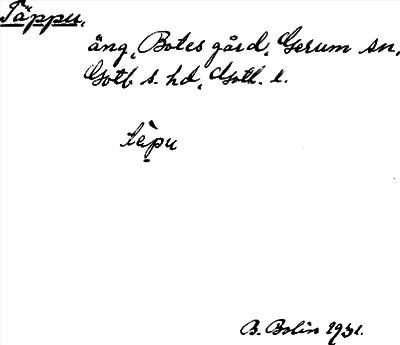 Täppu.
äng, Botes gård, Gerum sn,
Gotl. s. hd, Gotl. l.
tæ̀pu
B. Bolin 1931.